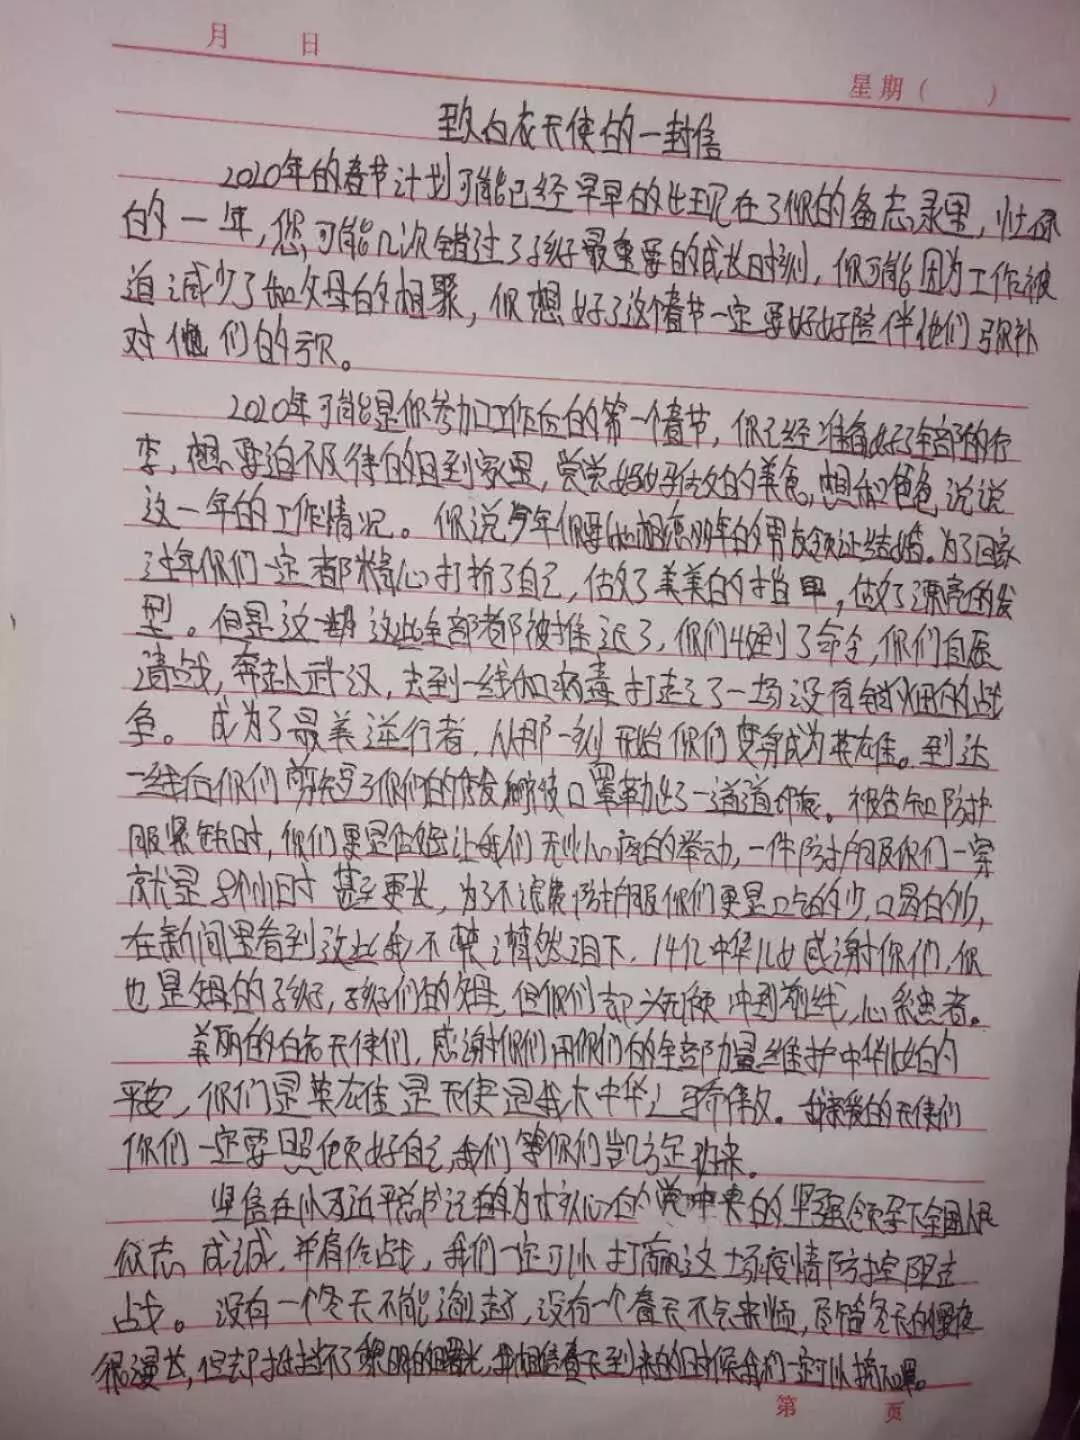 月 日
星期( )
致白衣天使的一封信
2020年的春节计划可能已经早早的出现在了你的备忘录里,忙碌
的一年,您可能几次错过了孩子最重要的成长时刻,你可能因为工作被
迫减少了和父母的相聚,你想好了这个春节一定要好好陪伴他们弥补
对他们的亏欠。
2020年可能是你参加工作后的第一个春节,你已经准备好了全部的行
李,想要迫不及待的回到家里,尝尝妈妈做的美食,想和爸爸说说
这一年的工作情况。你说今年你要和相恋多年的男友领证结婚。为了回家
过年你们一定都精心打扮了自己,做了美美的指甲,做了漂亮的发
型。但是这一切这些全部都被推迟了,你们收到了命令,你们自愿
请战,奔赴武汉,去到一线和病毒打起了一场没有硝烟的战
争。成为了最美逆行者,从那一刻开始你们变身成为英雄。到达
一线后你们剪短了你们的长发,脸被口罩勒出了一道道印痕。被告知防护
服紧缺时,你们更是做出让我们无比心疼的举动,一件防护服你们一穿
就是8个小时甚至更长,为了不浪费防护服你们更是口吃的少,口喝的少,
在新闻里看到这些我不禁潸然泪下,14亿中华儿女感谢你们,你
也是父母的孩子,孩子们的父母,但你们却义无反顾冲到前线,心系患者。
美丽的白衣天使们,感谢你们用你们的全部力量维护中华儿女的
平安,你们是英雄是天使是我大中华之骄傲。我亲爱的天使们
你们一定要照顾好自己,我们等你们凯旋归来。
坚信在以习近平总书记为核心的党中央的坚强领导下全国人民
众志成城,并肩作战,我们一定可以打赢这场疫情防控阻击
战。没有一个冬天不能逾越,没有一个春天不会来临,尽管冬天的黑夜
很漫长,但却抵挡不了黎明的曙光,我相信春天到来的时候我们一定可以摘下口罩。
第 页